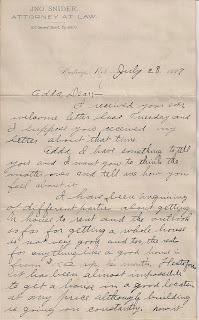 JNO. SNIDER,
ATTORNEY AT LAW.
July 28, 1897
Adda Dear:-
I received your ever
welcome letter last Tuesday and
I suppose you received my
letter about that time.
Adda I have something to tell
you and I want you to think the
matter over and tell me how you
feel about it.
I have been inquiring
of different parties about getting
a house to rent and the outlook
so far for getting a whole house
is not very good and too the rent
for anything like a good house is
from up a month. Heretofore
it has been almost impossible
to get a house in a good location
at any price although building
is going on constantly.